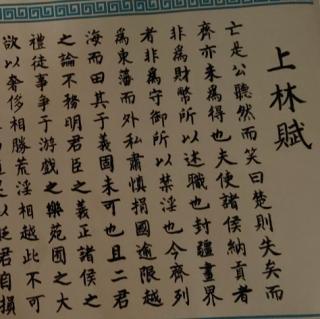 上林賦
亡是公聽然而笑曰楚則失矣而
齊亦未為得也夫使諸侯納貢者
非為財幣所以述職也封疆畫界
者非為守御所以禁淫也今齊列
為東藩而外私肅慎捐國逾限越
海而田其于義固未可也且二君
之論不務明君臣之義正諸侯之
禮徒事爭于游戲之樂苑囿之大
欲以奢侈相勝荒淫相越此不可
足以貶君自損